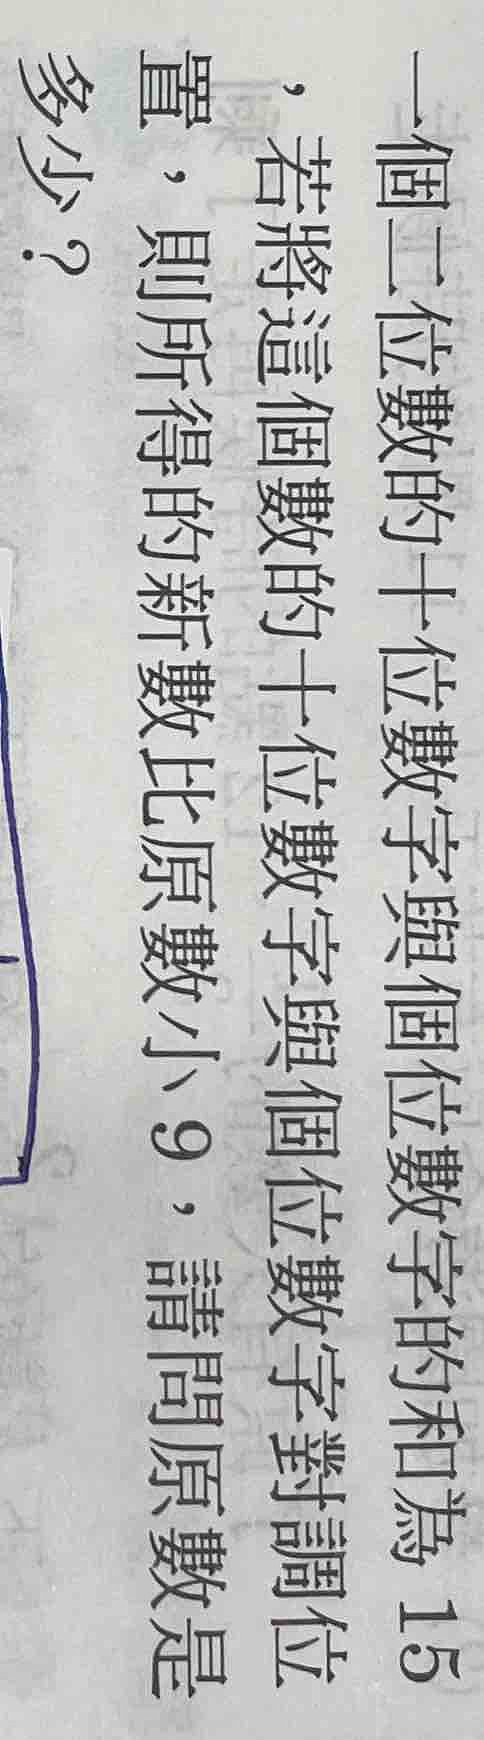 一個二位數的十位數字與個位數字的和為 15
，若將這個數的十位數字與個位數字對調位
置，則所得的新數比原數小 9，請問原數是
多少？